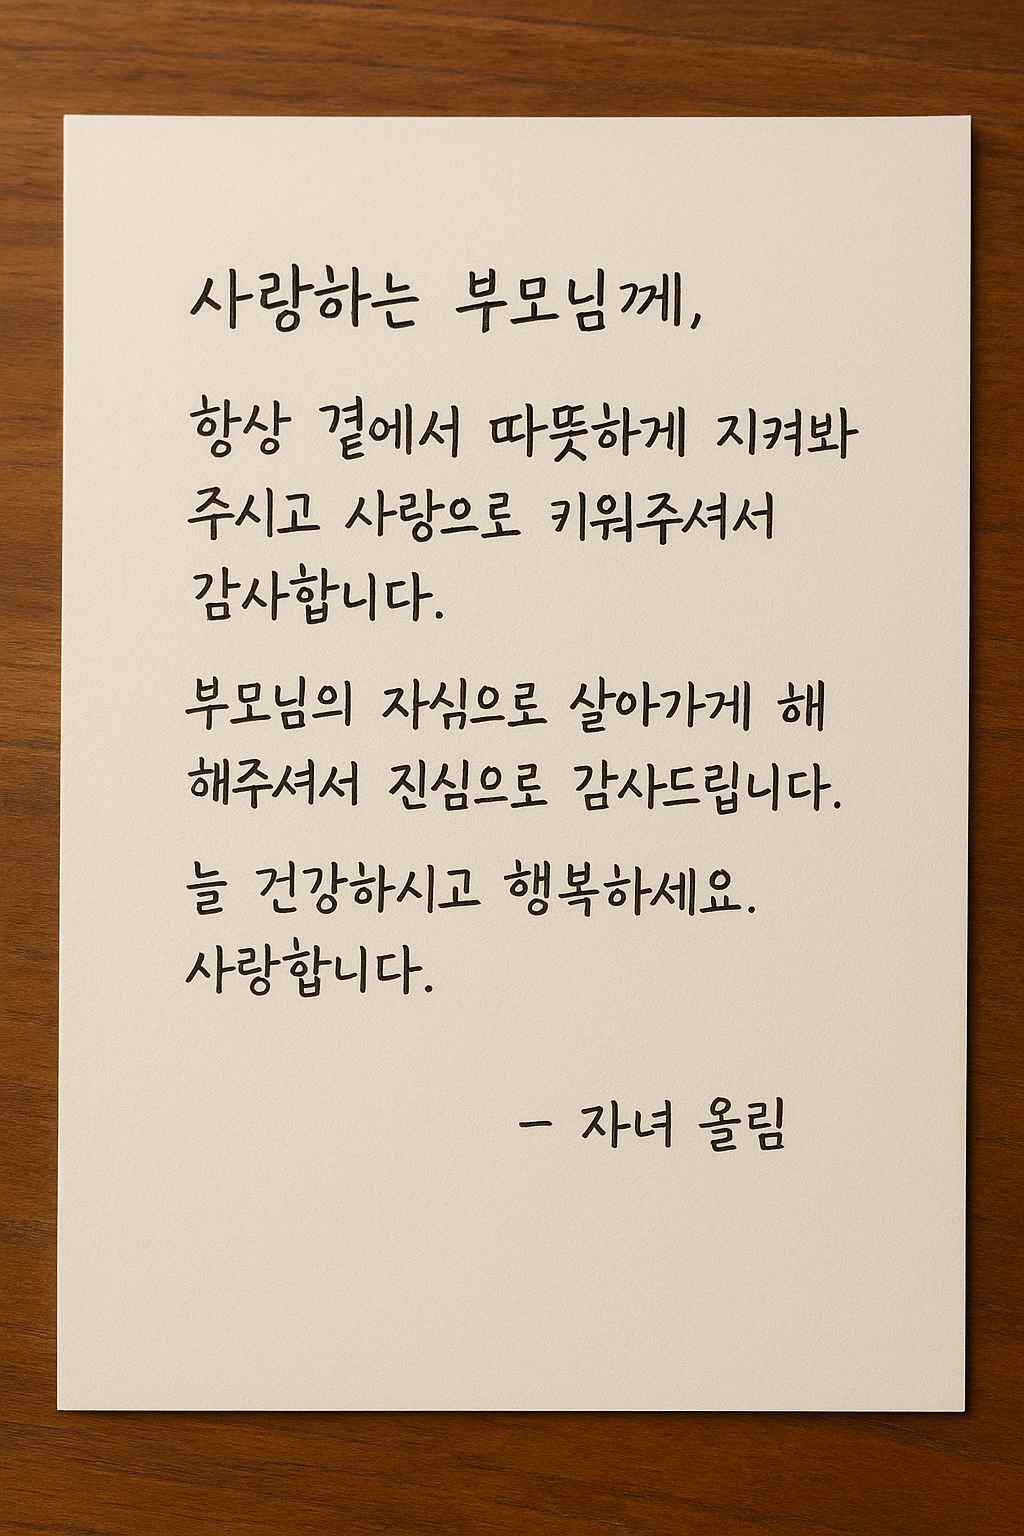 사랑하는 부모님께,
항상 곁에서 따뜻하게 지켜봐
주시고 사랑으로 키워주셔서
감사합니다.
부모님의 자심으로 살아가게 해
해주셔서 진심으로 감사드립니다.
늘 건강하시고 행복하세요.
사랑합니다.
– 자녀 올림